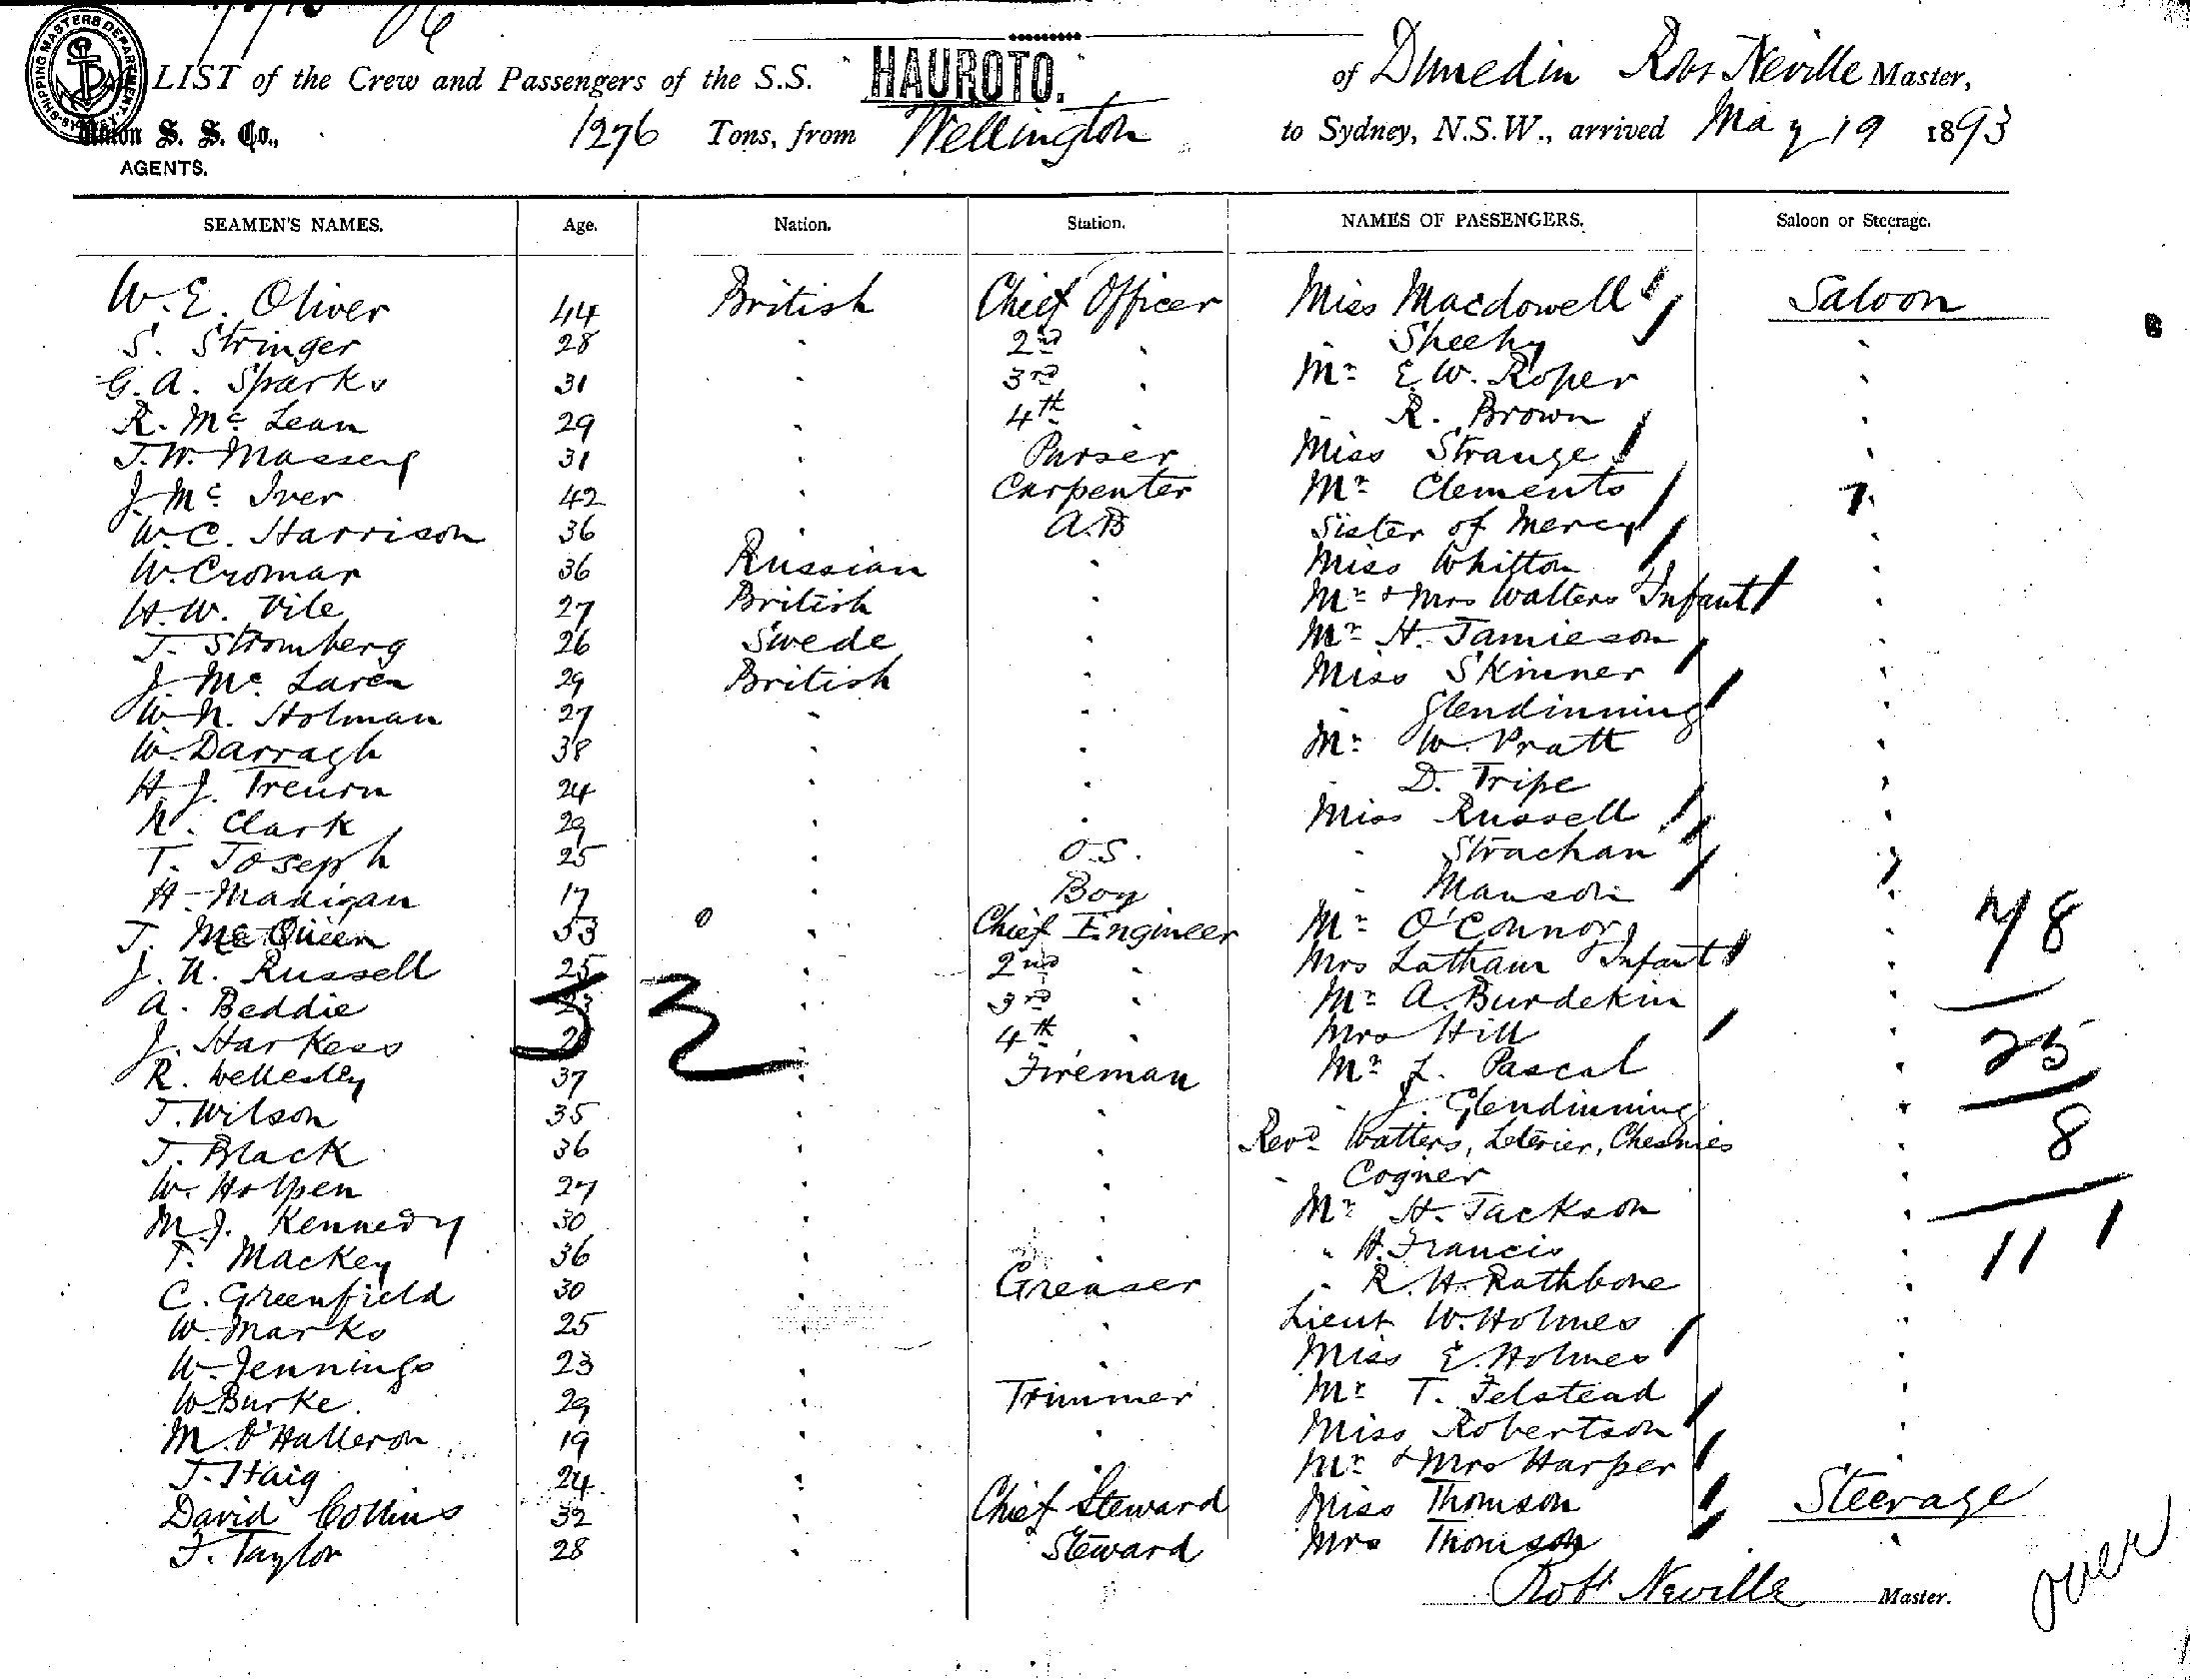 SHIPPING MASTERS DEPARTMENT SYDNEY
LIST of the Crew and Passengers of the S.S. HAUROTO. of Dunedin Robt Neville Master,
Union S. S. Co., 1276 Tons, from Wellington to Sydney, N.S.W., arrived May 19 1893
AGENTS.
SEAMEN'S NAMES. Age. Nation. Station. NAMES OF PASSENGERS. Saloon or Steerage.
W. E. Oliver 44 British Chief Officer Miss Macdowell Saloon
S. Stringer 28 " 2nd " " Sheehy "
G. A. Sparks 31 " 3rd " Mr E. W. Roper "
R. Mc Lean 29 " 4th " " R. Brown "
T. W. Massey 31 " Purser Miss Strange "
J. Mc Iver 42 " Carpenter Mr Clements "
W. C. Harrison 36 " A.B Sister of Mercy "
W. Cromar 36 Russian " Miss Whitton "
H. W. Vile 27 British " Mr & Mrs Walters Infant "
T. Stromberg 26 Swede " Mr H. Jamieson "
J. Mc Laren 29 British " Miss Skinner "
W. N. Holman 27 " " " Glendinning "
W. Darragh 38 " " Mr W. Pratt "
H. J. Treurn 24 " " " D. Tripe "
N. Clark 29 " " Miss Russell "
T. Joseph 25 " O.S. " Strachan "
H. Madigan 17 " Boy " Manson "
J. McQueen 53 " Chief Engineer Mr O'Connor "
J. N. Russell 25 " 2nd " Mrs Latham Infant "
A. Beddie " 3rd " Mr A. Burdekin "
J. Harkess " 4th " Mrs Hill "
R. Wellesley 37 " Fireman Mr L. Pascal "
T. Wilson 35 " " " J. Glendinning "
J. Black 36 " " Revd Watters, Leterier, Chesnies "
W. Holpen 27 " " " Cogner
M. J. Kennedy 30 " " Mr H. Jackson "
T. Mackey 36 " " " H. Francis "
C. Greenfield 30 " Greaser " R. H. Rathbone "
W. Marks 25 " " Lieut W. Holmes "
W. Jennings 23 " " Miss E. Holmes "
W Burke 29 " Trimmer Mr T. Felstead "
M. O'Halleron 19 " " Miss Robertson "
J. Haig 24 " " Mr & Mrs Harper "
David Collins 32 " Chief Steward Miss Thomson Steerage
F. Taylor 28 " Steward Mrs Thomson "
53
78
25
8
111
Robt Neville Master.
over